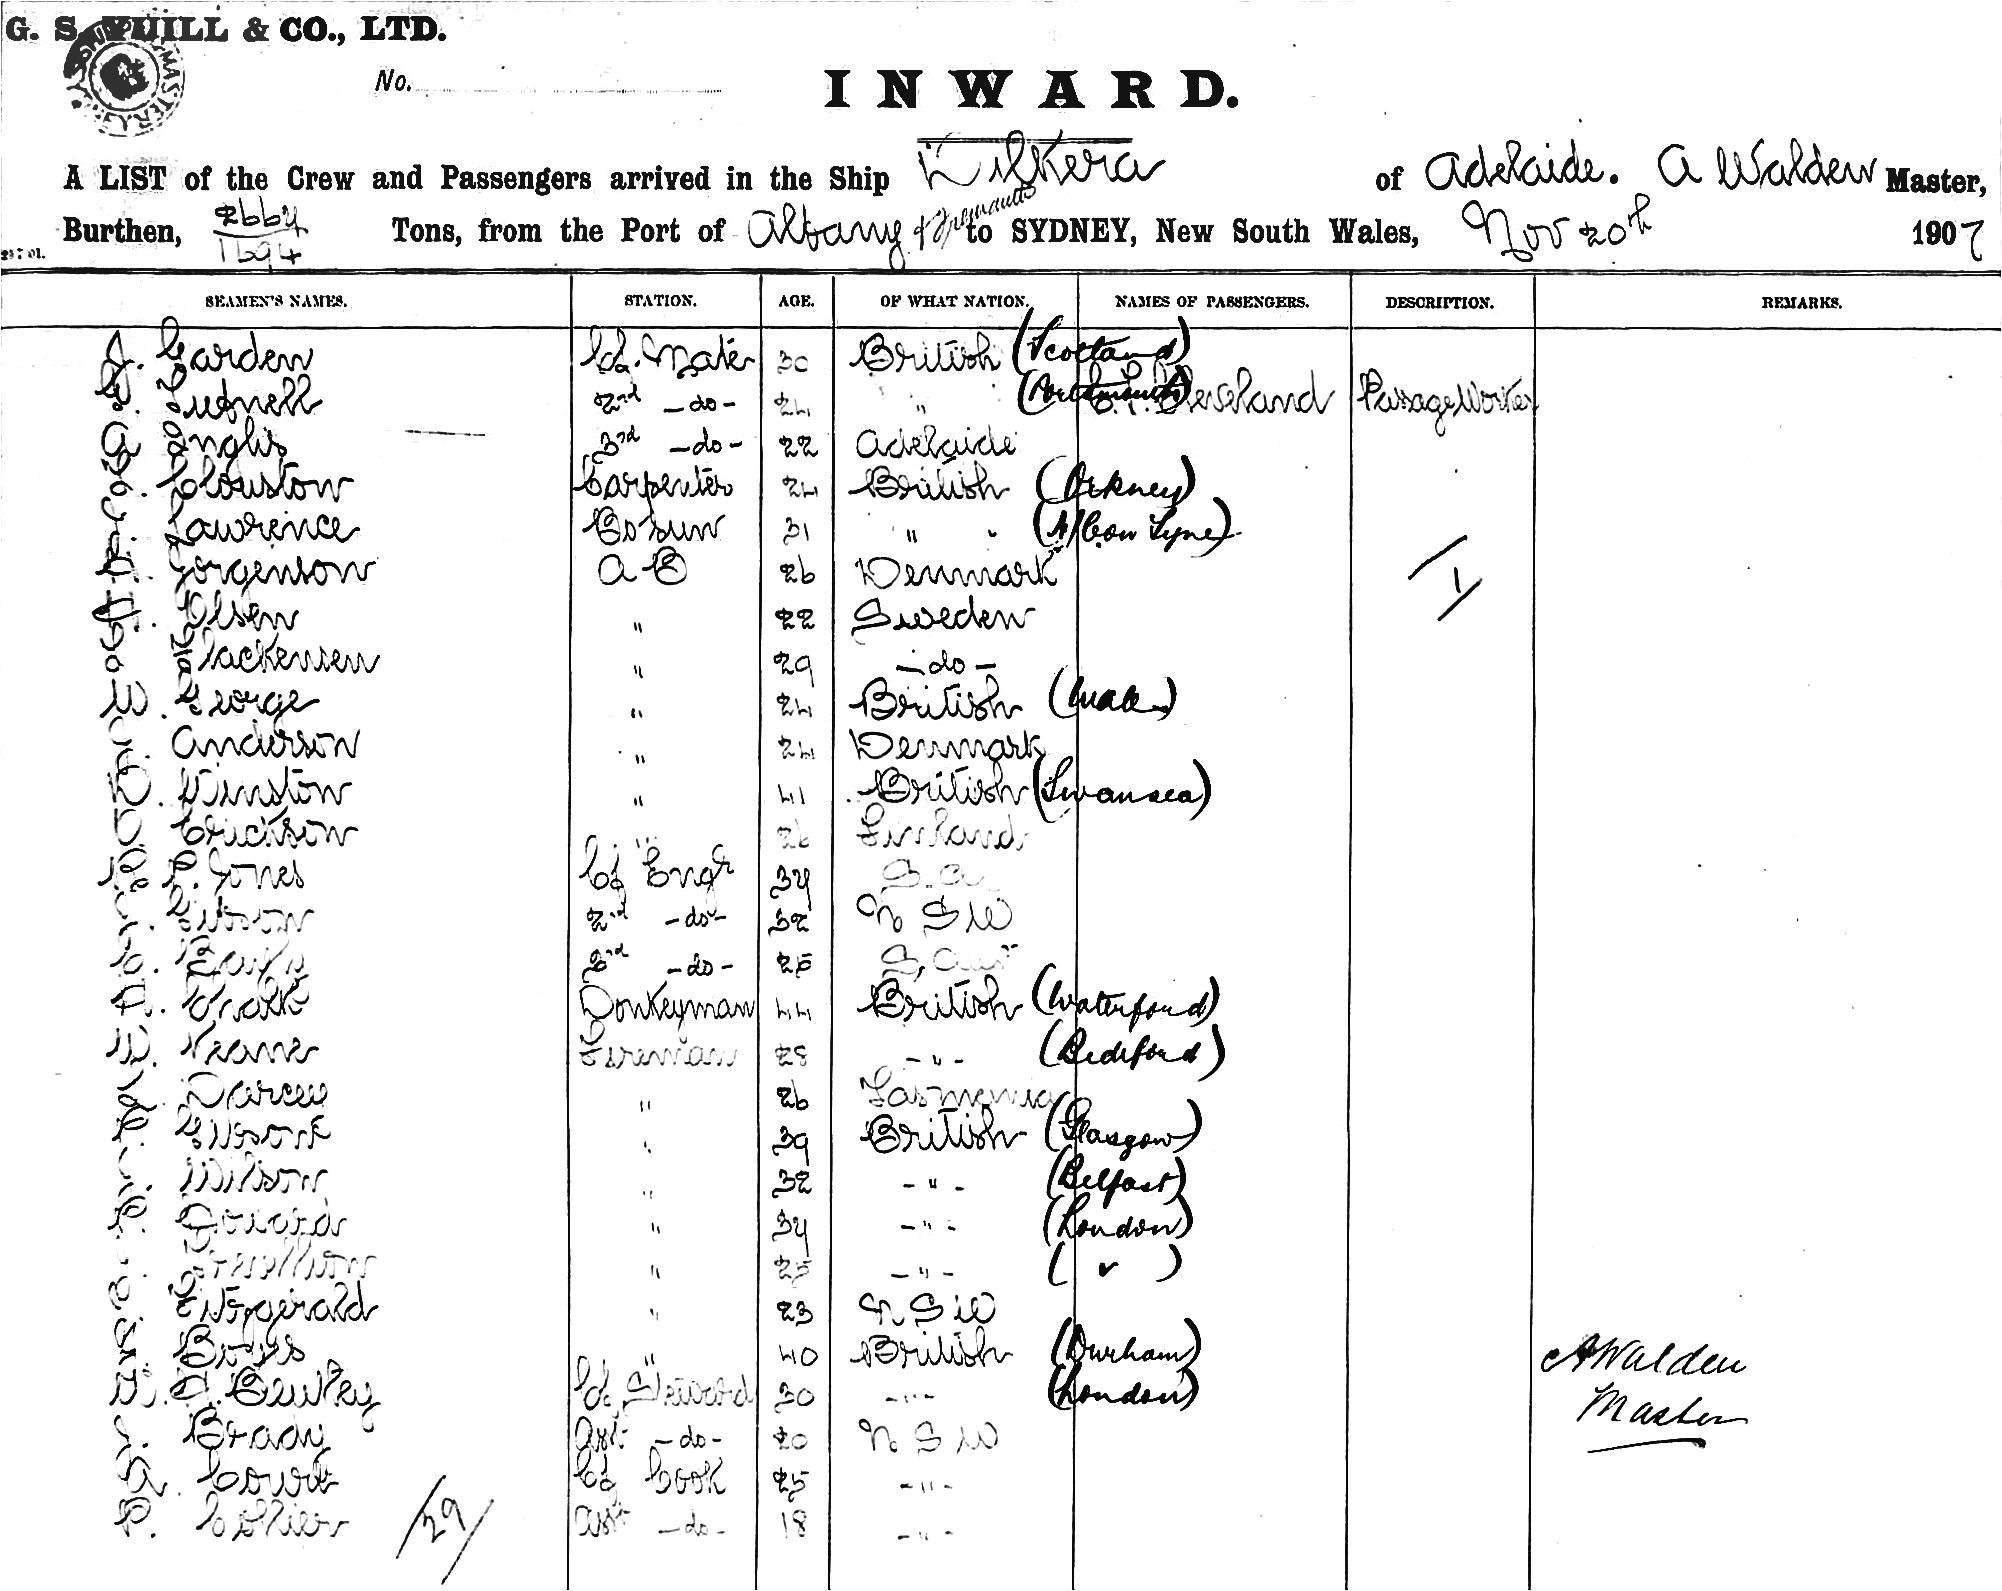 G. S. YUILL & CO., LTD.
No.
INWARD.
A LIST of the Crew and Passengers arrived in the Ship Dilkera of Adelaide. A Walden Master,
Burthen, 2664 / 1694 Tons, from the Port of Albany & Fremantle to SYDNEY, New South Wales, Nov 20th 1907
SEAMEN'S NAMES. STATION. AGE. OF WHAT NATION. NAMES OF PASSENGERS. DESCRIPTION. REMARKS.
J. Carden Cf. Mate 30 British (Scotland)
2nd -do- 24 " Cleveland Passage Worker
A Inglis 3rd -do- 22 Adelaide
Clouston Carpenter 24 British (Orkney)
Lawrence Bosun 31 " "
Jorgenson A B 26 Denmark
Olsen " 22 Sweden
Mackensen " 29 -do-
W. George " 24 British
Anderson " 24 Denmark
D. Winston " 41 British (Swansea)
Erickson " 26 Finland
Jones Cf Engr 34 S. A
Gibson 2nd -do- 32 N S W
3rd -do- 25 S. Aust
Donkeyman 44 British (Waterford)
W. Keane Fireman 28 - " - (Bideford)
Darcey " 26 Tasmania
" 39 British (Glasgow)
Wilson " 32 - " - (Belfast)
" 34 - " - (London)
" 25 - " - ( " )
Fitzgerald " 23 N S W
" 40 British (Durham)
Cf Steward 30 - " - (London)
Brady Asst -do- 20 N S W
Court Cf Cook 25 - " -
Collier Asst -do- 18 - " -
/29/
A Walden
Master